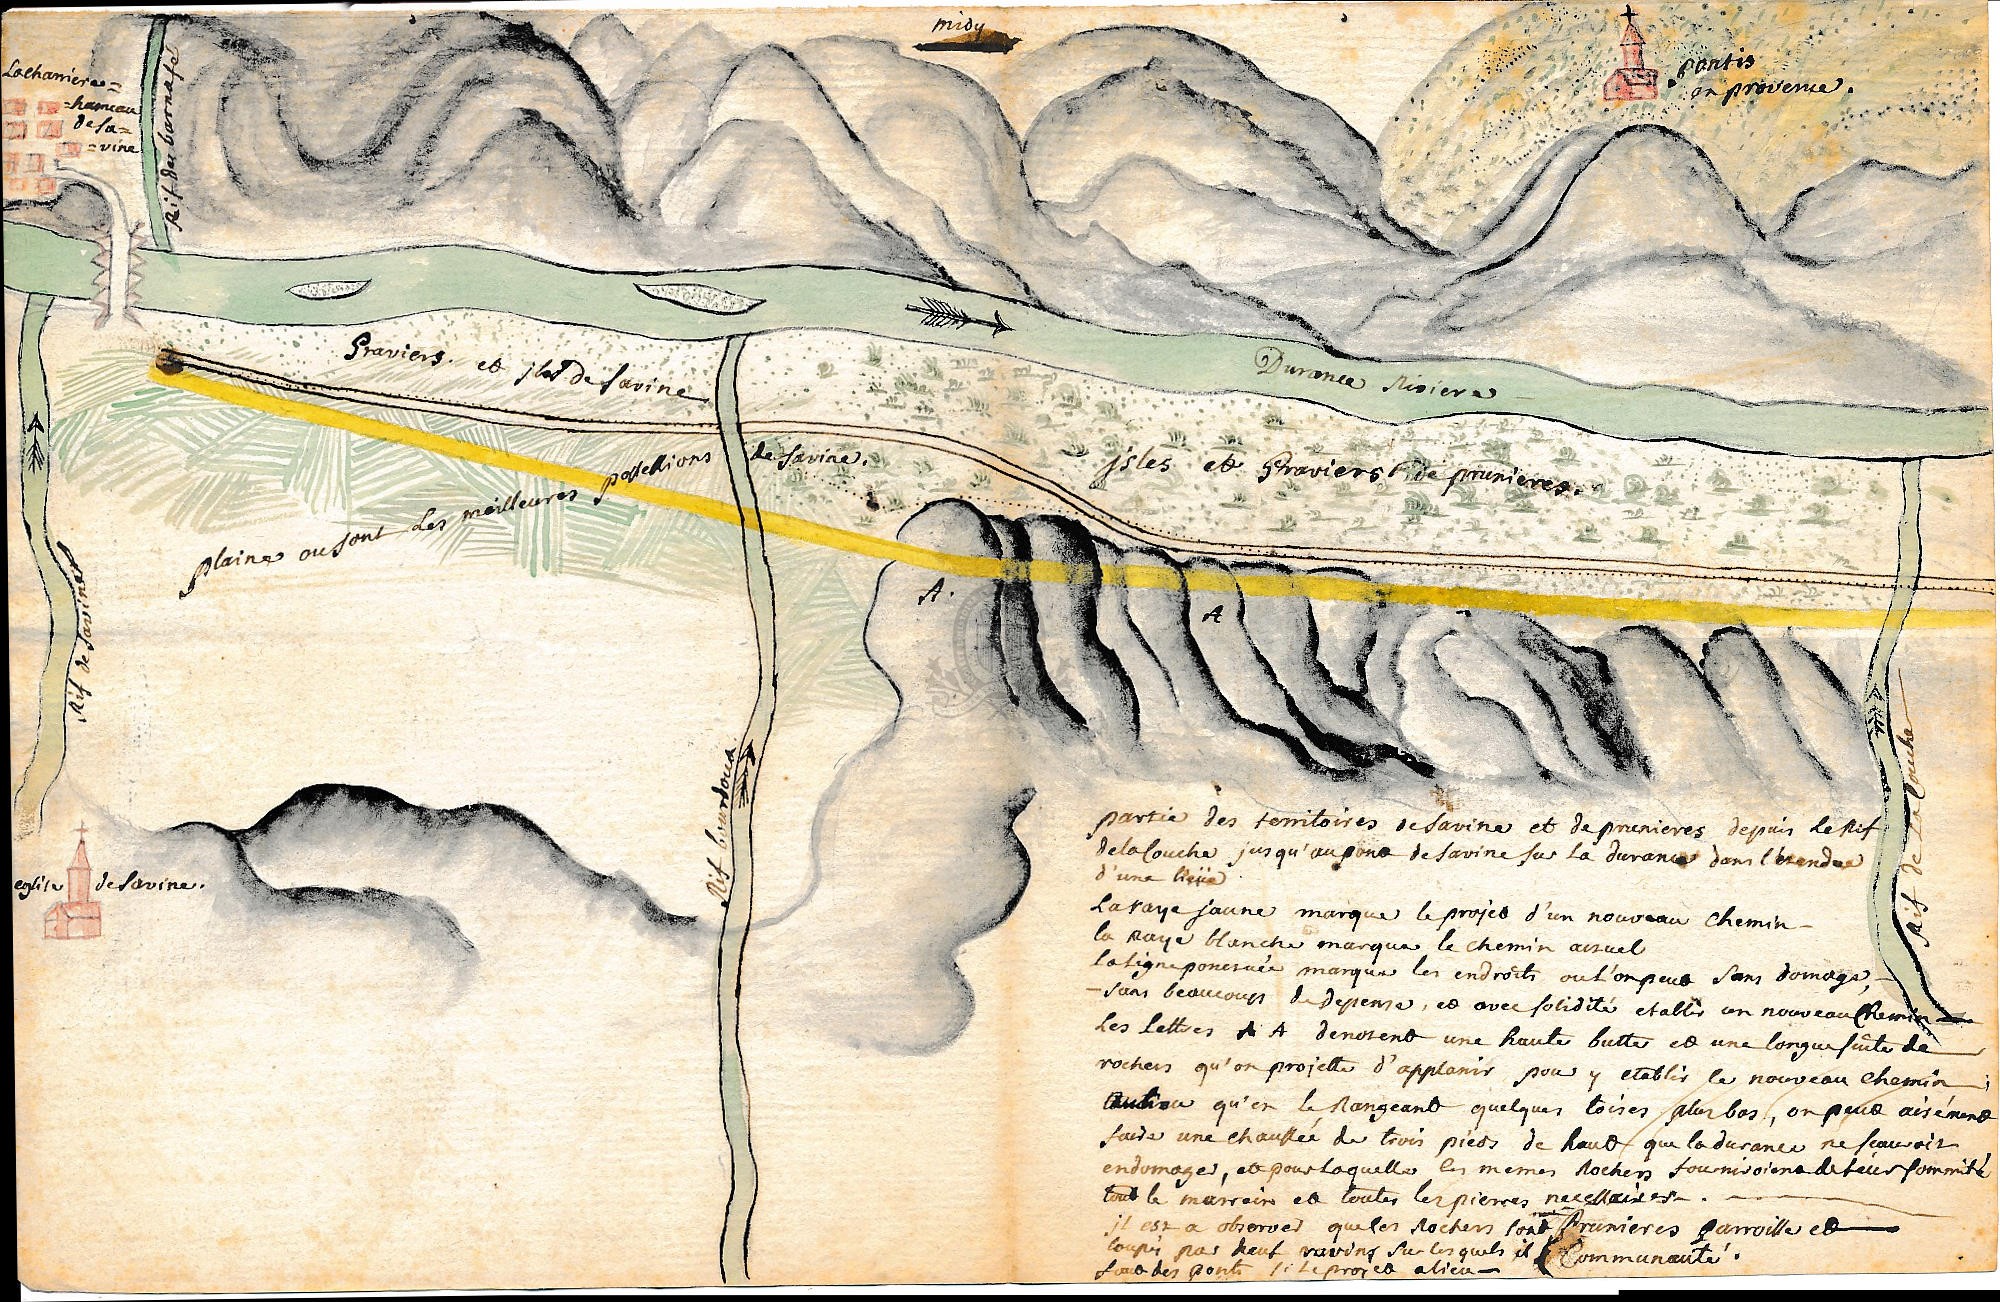 midy
Lachariere=
=hameau
de sa=
=vine
Rif de barnafel
pontis
en provence.
Graviers et jles de Savine
Durance Riviere
plaine ou sont les meilleures possessions de Savine.
jsles et Graviers de prunieres.
A.
A
Rif de Savines
Rif bourdoux
Rif de la Couche
eglise de Savine.
partie des territoires de Savine et de prunieres depuis le Rif
de la Couche jusqu'au pont de Savine sur la durance dans l'etendue
d'une lieüe
La raye jaune marque le projet d'un nouveau chemin
la raye blanche marque le chemin actuel
la ligne ponctuée marque les endroits ou l'on peut sans domage,
sans beaucoup de depense, et avec solidité etablir un nouveau Chemin
Les lettres A A denotent une haute butte et une longue suite de
rochers qu'on projette d'applanir pour y etablir le nouveau chemin;
qu'en le Rangeant quelques toises plus bas, on peut aisément
faire une chaussée de trois pieds de haut que la durance ne scauroit
endomager, et pour laquelle les memes Rochers fourniroient de leur sommité
tout le marrain et toutes les pierres necessaires.
il est a observer que les Rochers sont
coupé par neuf ravins sur lesquels il
faut des ponts si le projet a lieu
Prunieres parroisse et
Communauté.